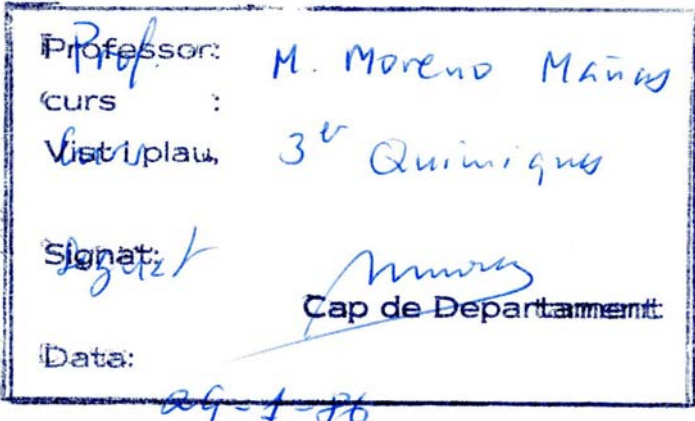 Professor:
Prof. M. Moreno Mañas
curs :
Curs 3er Químiques
Vist i plau,
Signat:
Signat
Cap de Departament
Data:
29-1-86